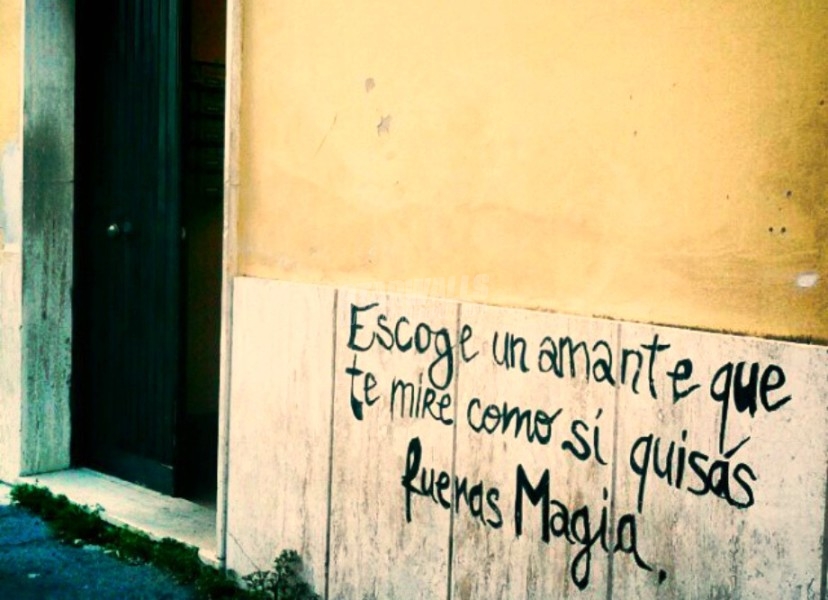 Escoge un amante que
te mire como sí quisás
fueras Magia.